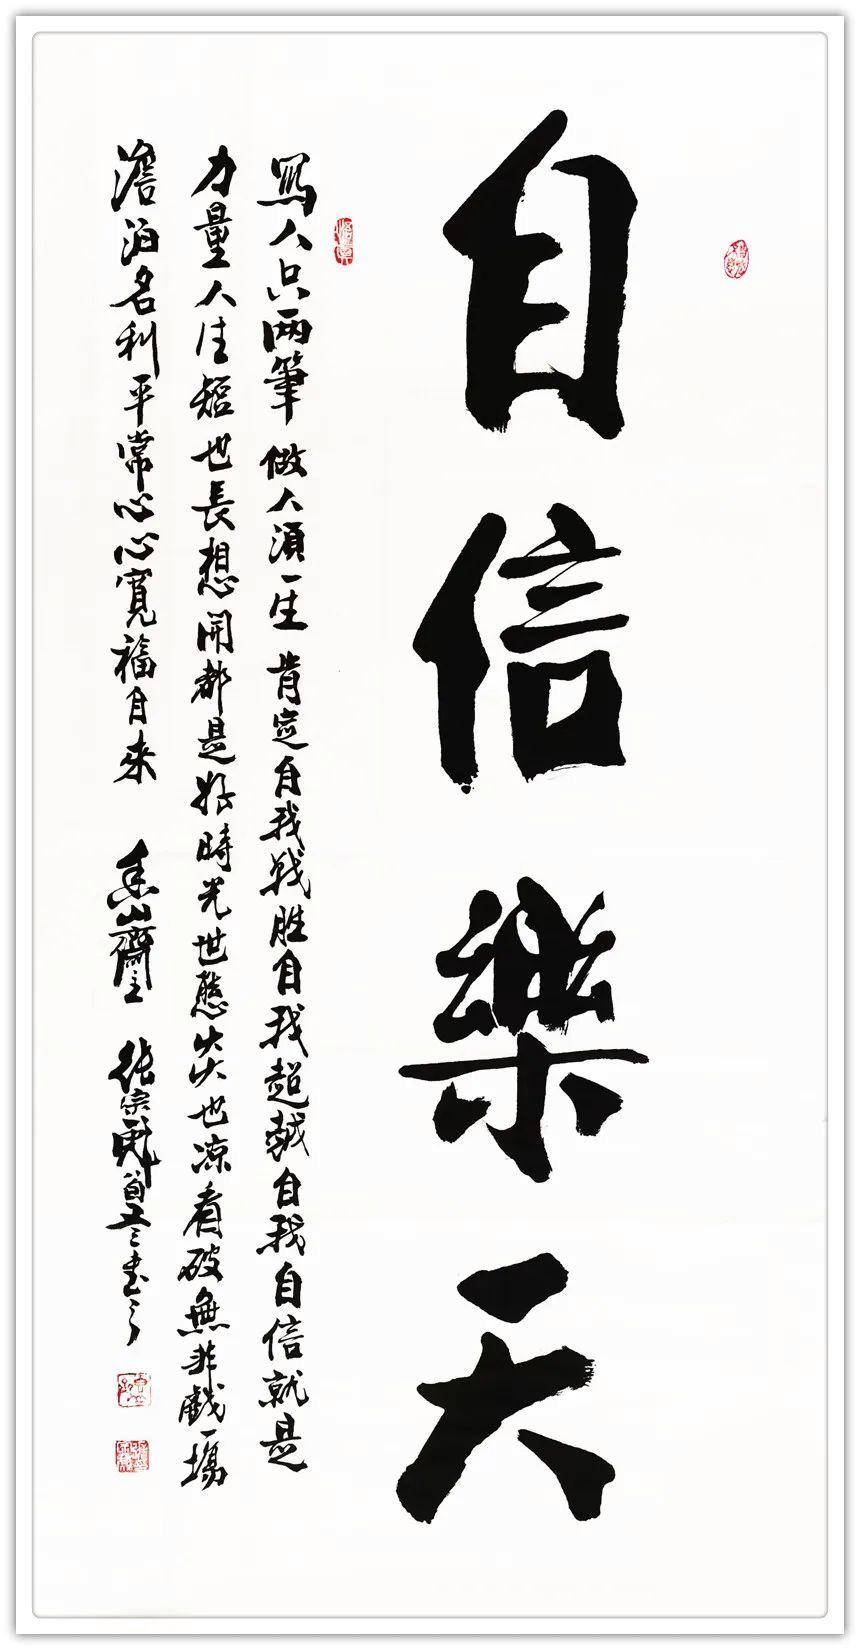 自信樂天
寫人只兩筆做人須一生肯定自我战胜自我超越自我自信就是
力量人生短世長想開都是好時光世態炎也凉看破無非戲一場
澹泊名利平常心心寬福自來 山齋主 張宗